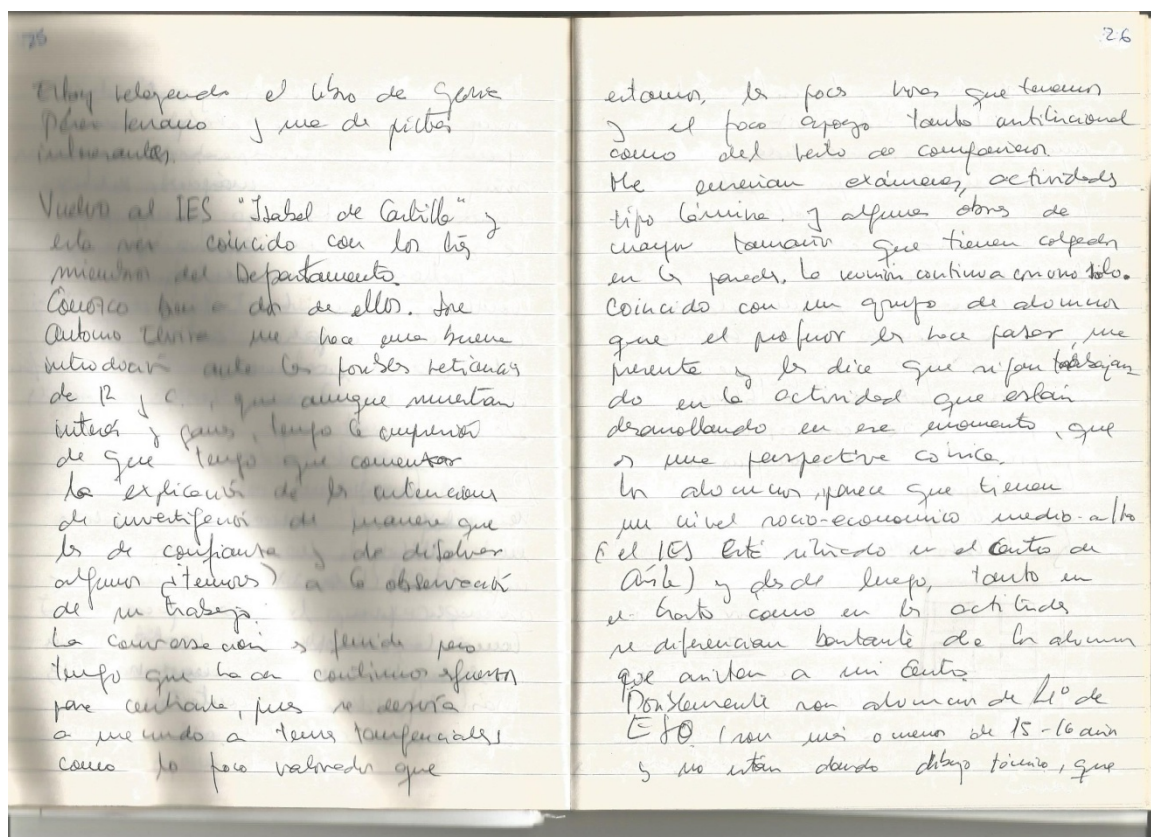 25
Estoy releyendo el libro de Gloria
Pérez Serrano y me da pistas
interesantes.
Vuelvo al IES "Isabel de Castilla" y
esta vez coincido con los tres
miembros del Departamento.
Conozco bien a dos de ellos. José
Antonio Elvira me hace una buena
introducción ante las posibles reticencias
de R y C., que aunque muestran
interés y ganas, tengo la impresión
de que tengo que comentar
la explicación de las intenciones
de investigación de manera que
les de confianza y de disolver
algunos (temores) a la observación
de su trabajo.
La conversación es fluida pero
tengo que hacer continuos esfuerzos
para centrarla, pues se desvía
a menudo a temas tangenciales
como lo poco valorados que
26
estamos, las pocas horas que tenemos
y el poco apoyo tanto institucional
como del resto de compañeros.
Me enseñan exámenes, actividades
tipo lámina y algunas obras de
mayor tamaño que tienen colgadas
en las paredes. La reunión continua con uno sólo.
Coincido con un grupo de alumnos
que el profesor les hace pasar, me
presenta y les dice que sigan trabajan
do en la actividad que están
desarrollando en ese momento, que
es una perspectiva cónica.
Los alumnos, parece que tienen
un nivel socio-economico medio-alto
(el IES Está situado en el Centro de
Ávila) y desde luego, tanto en
el trato como en las actitudes
se diferencian bastante de los alumnos
que asisten a mi Centro.
Posiblemente son alumnos de 4º de
ESO (son más o menos de 15-16 años
y no están dando dibujo técnico, que